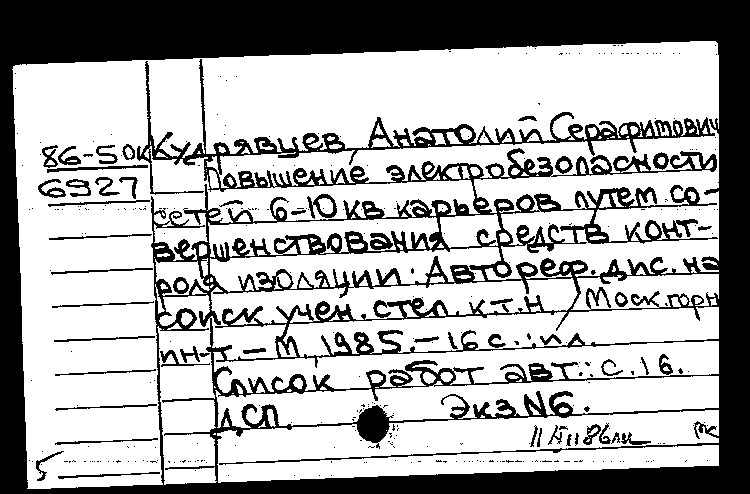 86-5 ОК Кудрявцев, Анатолий Серафимович
6927 Повышение электробезопасности
сетей 6-10 кв карьеров путем со-
вершенствования средств конт-
роля изоляции: Автореф. дис. на
соиск. учен. степ. к.т.н. / Моск. горн.
ин-т. - М., 1985. - 16 с.: ил.
Список работ авт.: с. 16.
ДСП. Экз N6.
5